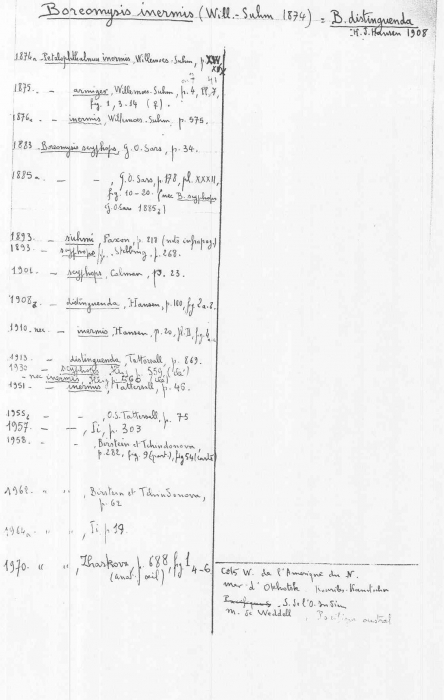 Boreomysis inermis (Will.-Suhm 1874) = B. distinguenda
H.J. Hansen 1908
1874a Petalophthalmus inermis, Willemoes-Suhm, p. XV
1875. — armiger, Willemoes-Suhm, p. 4, pl. 7,
fig. 1, 3-14 (♀).
1876a — inermis, Willemoes-Suhm, p. 575.
1883 Boreomysis scyphops, G.O. Sars, p. 34.
1885a — — , G.O. Sars, p. 178, pl. XXXII,
fig. 10-20. (nec B. scyphops
G.O. Sars 1885)
1893. — suhmi, Faxon, p. 218
1893. — scyphops, Stebbing, p. 268.
— scyphops, Calman, p. 23.
1908 — distinguenda, Hansen, p. 100, fig 2a-
1910. nec — inermis, Hansen, p. 20, pl. II, fig 4
1913 — distinguenda, Tattersall, p. 869.
1930 — scyphops p. 559
nec inermis
1951 — inermis, Tattersall, p. 46.
1955 — — , O.S. Tattersall, p. 75
1957. — — , Ii, p. 303
1958. — — , Birstein et Tchindonova,
p. 282, fig 9 (part), fig 54 (carte)
" " , Birstein et Tchindonova,
p. 62
1964a " " , Ii p. 19.
1970 " " , Zharkova p. 688, fig 1, 4-6
(anat. œil)
Côte W. de l'Amérique du N.
mer d'Okhotsk
S. de l'O. Indien
m. de Weddell , Pacifique austral